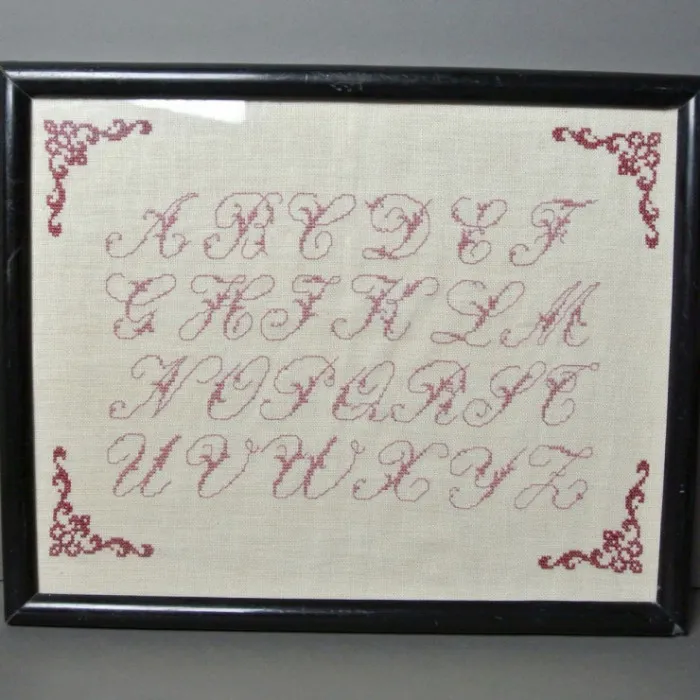 A B C D E F
G H I K L M
N O P Q R S T
U V W X Y Z